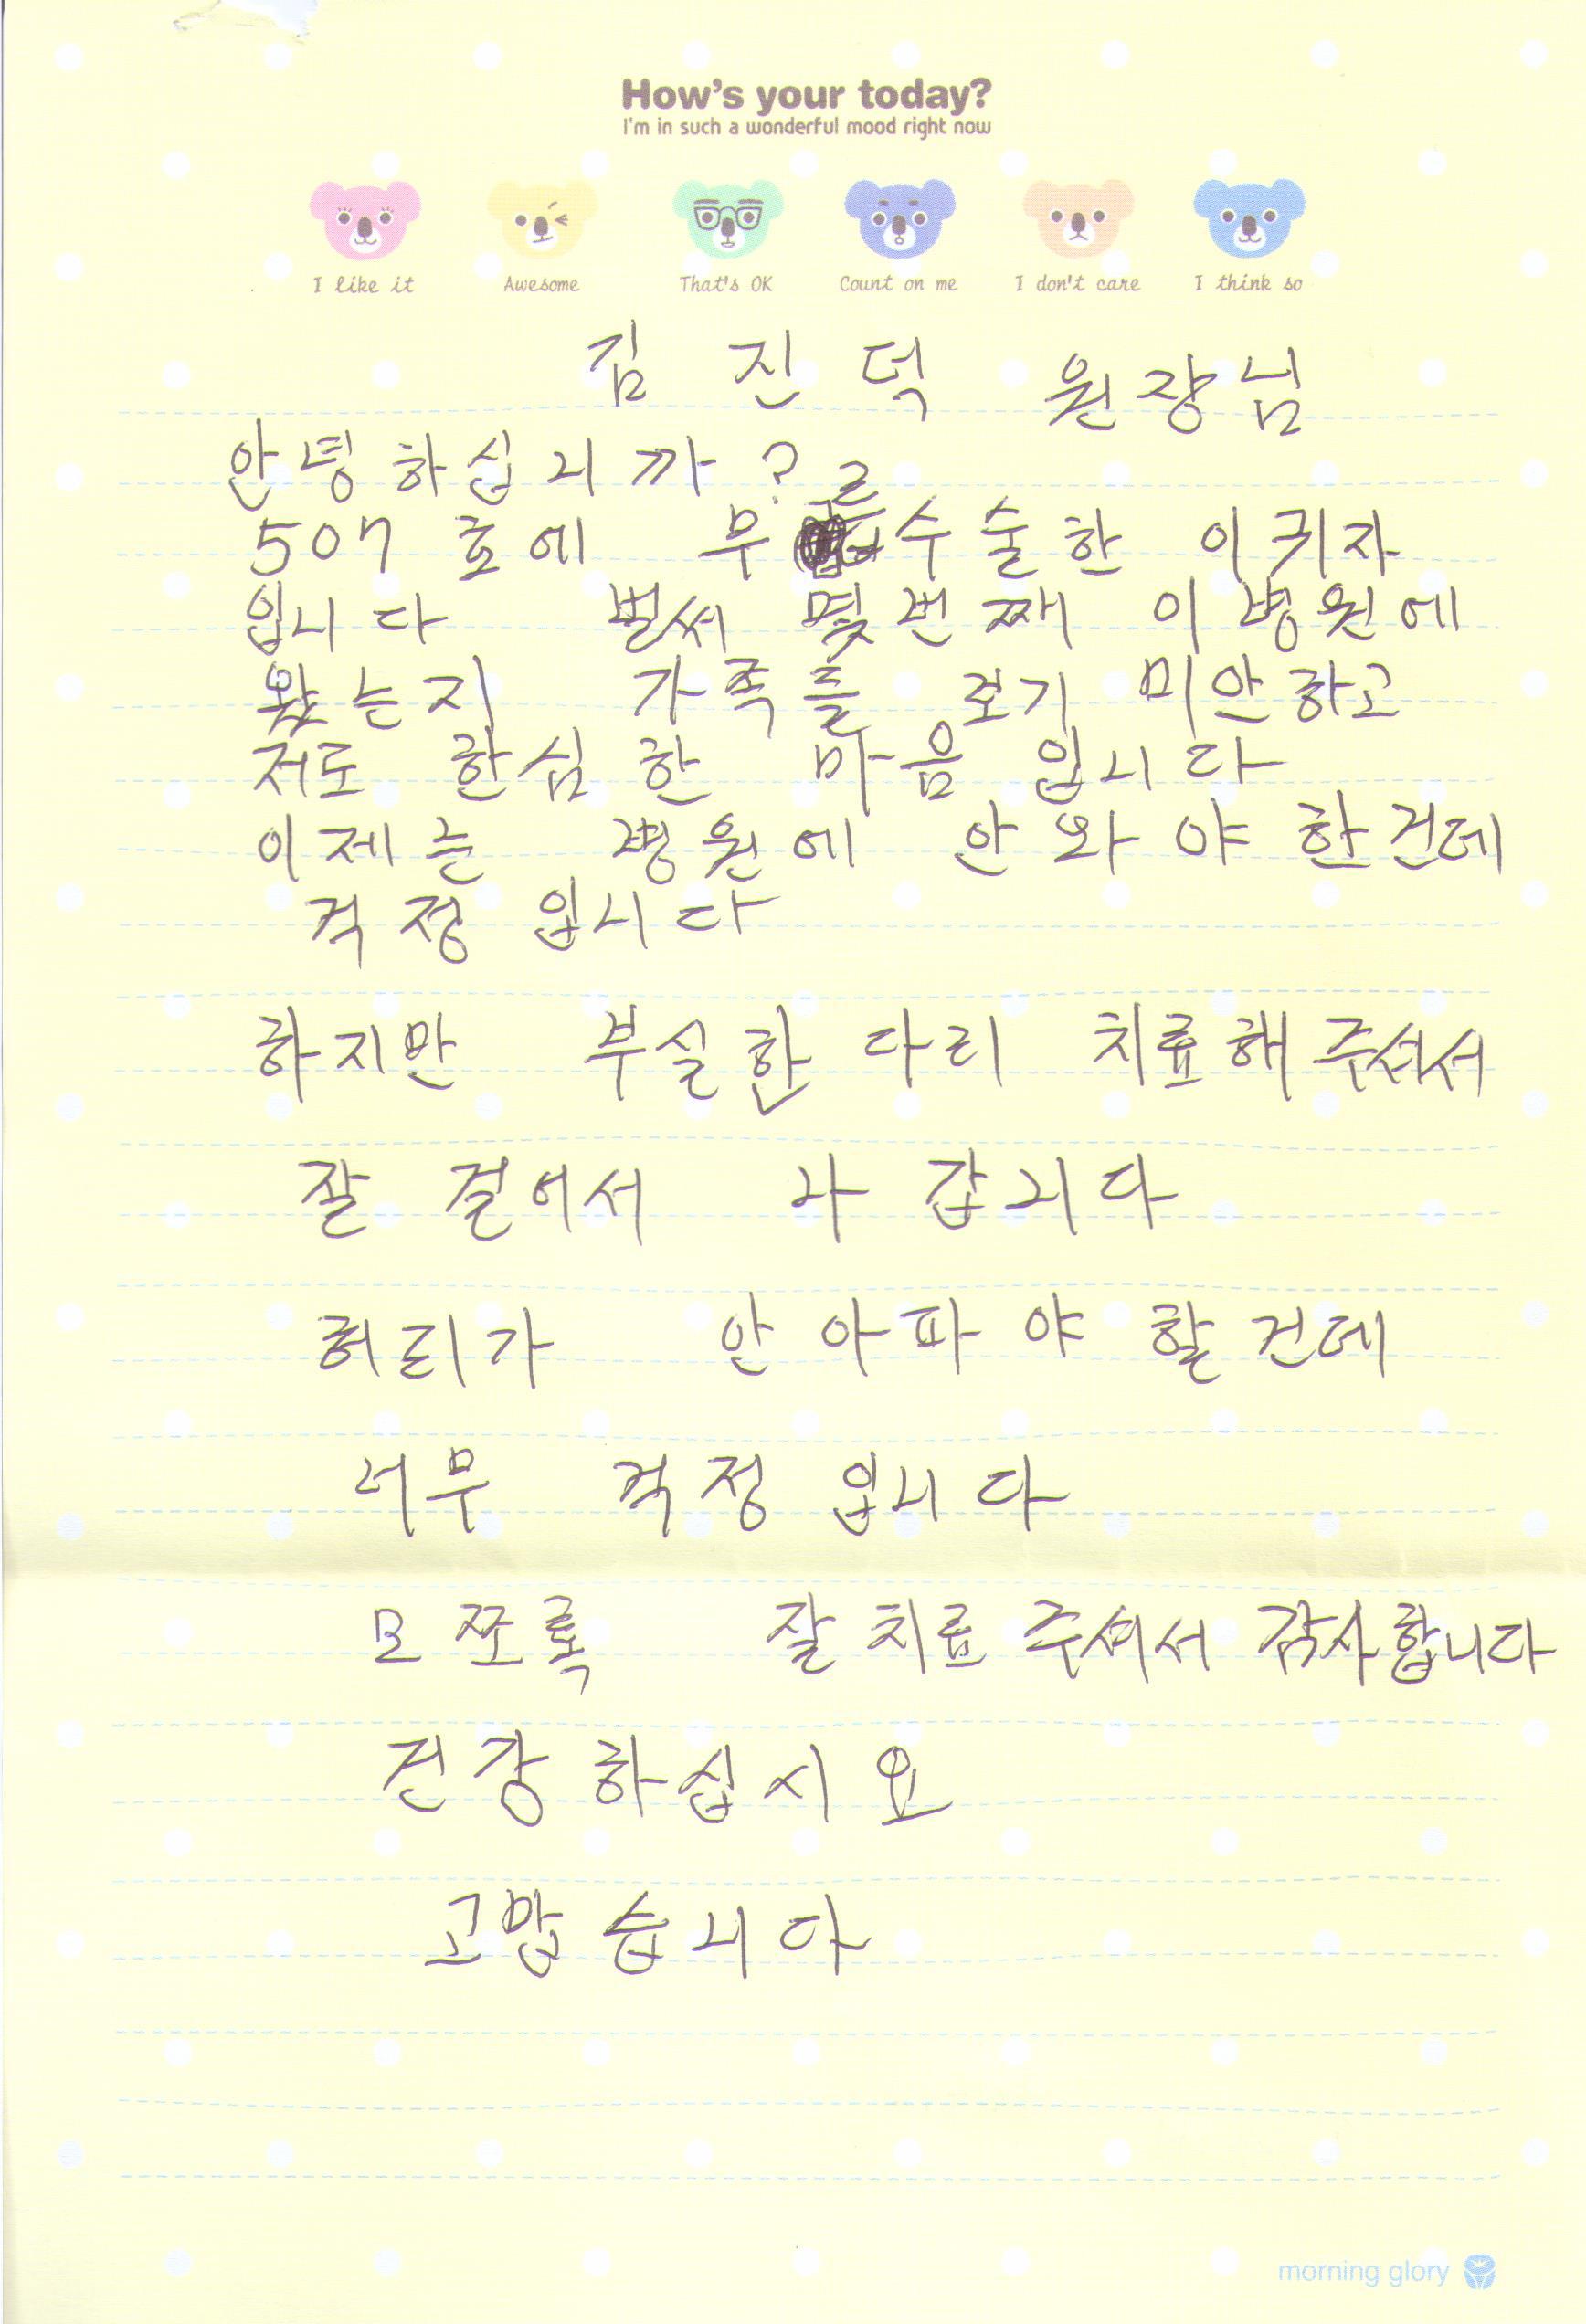 How's your today?
I'm in such a wonderful mood right now
I like it Awesome That's OK Count on me I don't care I think so
김 진 덕 원장님
안녕하십니까?
507 호에 무릎수술한 이귀자
입니다 벌써 몇번째 이병원에
왔는지 가족들 보기 미안하고
저도 한심한 마음 입니다
이제는 병원에 안와야 한건데
걱정입니다
하지만 부실한 다리 치료해주셔서
잘 걸어서 나갑니다
허리가 안아파야 할건데
너무 걱정 입니다
모쪼록 잘치료 주셔서 감사합니다
건강하십시요
고맙습니다
morning glory